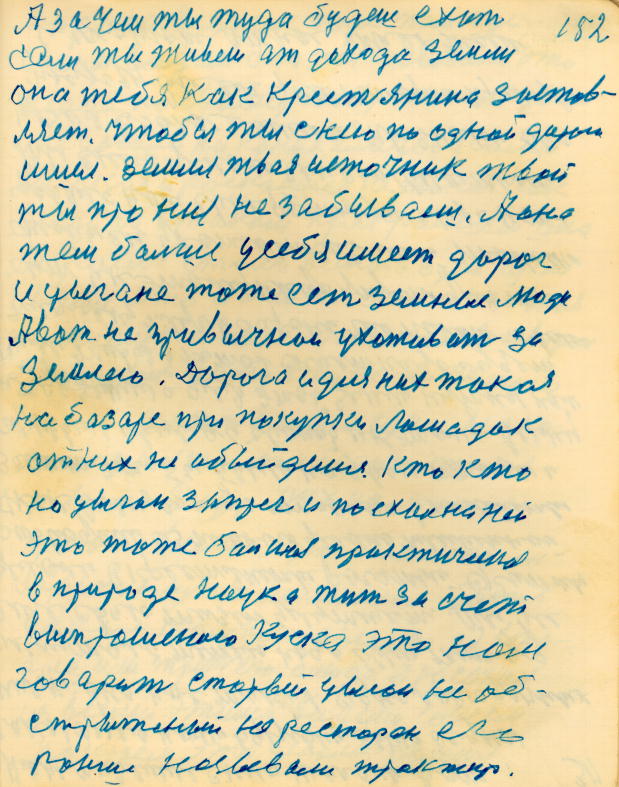 А зачем ты туда будеш ехат 182
Если ты живеш от дохода земли
она тебя как Крестянина застов-
ляет. чтобы ты ехсю по одной дороги
шил. Земля твая источник твой
ты про ния не забываеш. А она
тем болши у себя имеет дорог
и цыгане тоже ест земныя люди
А вот не привычной ухоживат за
Землею. Дорога и для них такая
на базаре при покупки Лошадок
от них не обыйдешя. Кто кто
но цыган запрег и поехал на ней
это тоже балшая практичина
в природе наука жит за счет
выпрошеного Куска это нам
говарит старый цыган не об-
стриженый на ресторан его
раньши называли трактир.